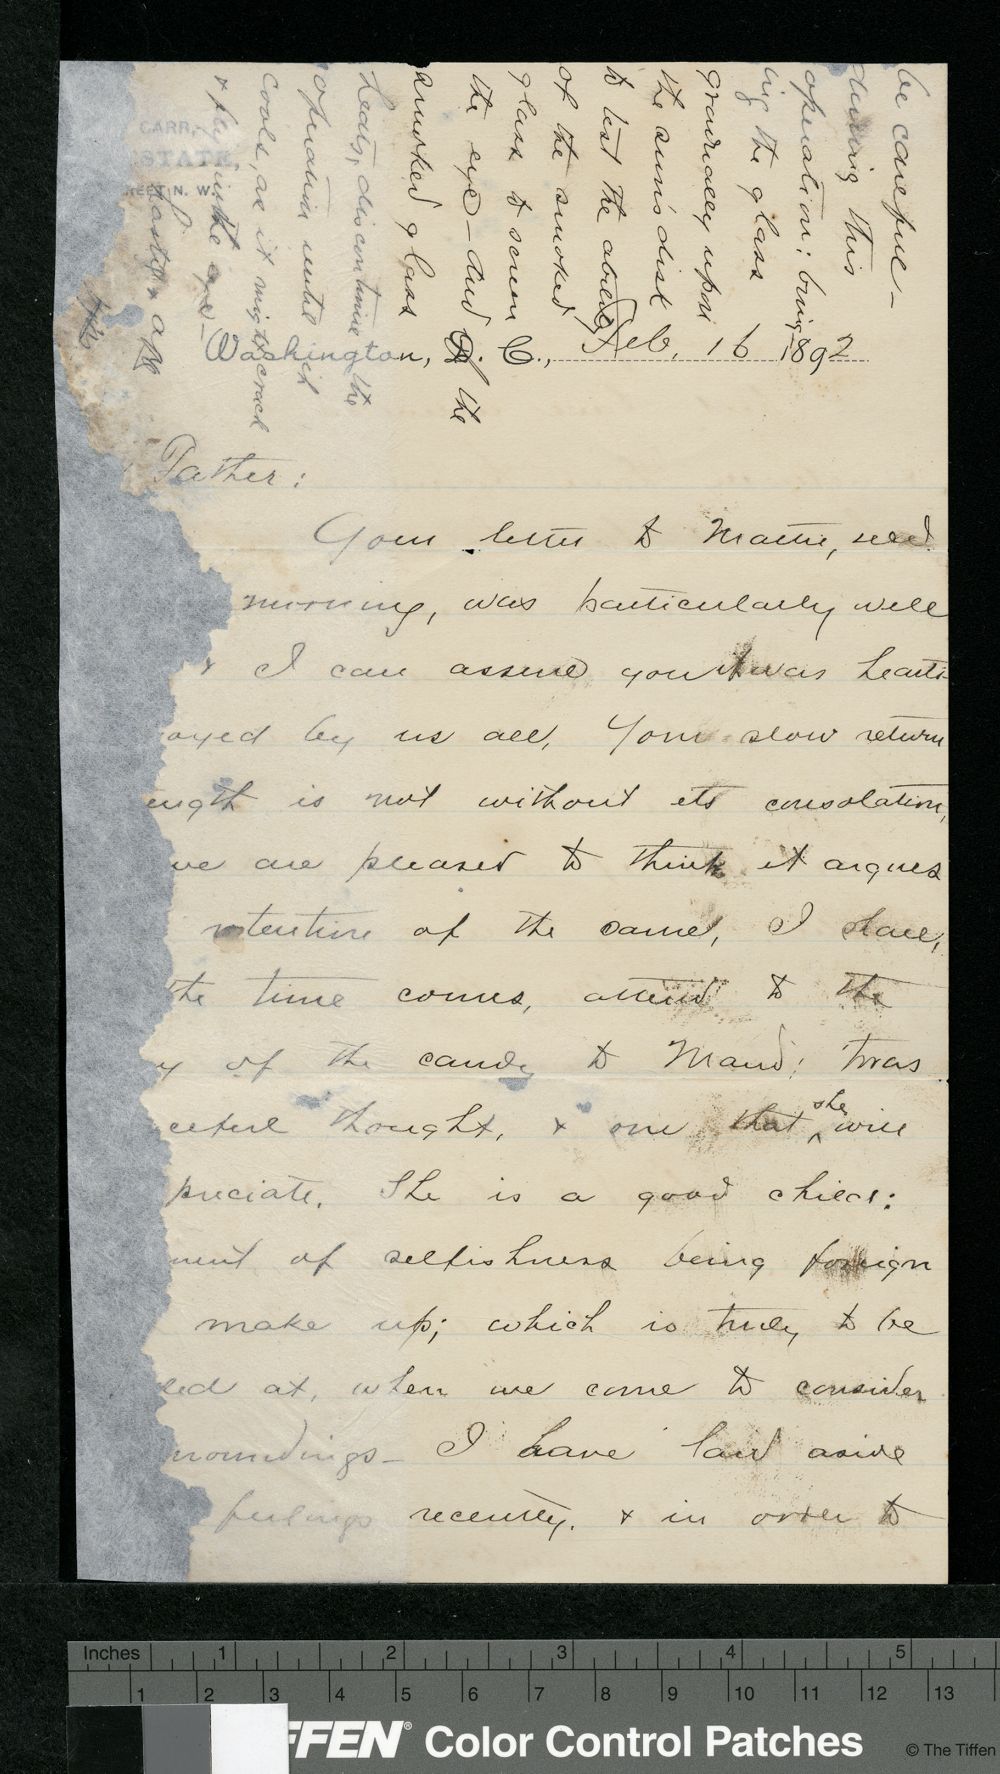 be careful-
during this
operation: bring-
ing the glass
gradually upon
the sun's disk
to test the ability
of the smoked
glass to screen
the eye - and if the
smoked glass
heats, discontinue the
operation until it
cools, as it might crack
& in the eye-
CARR,
STATE,
REET N. W.
Washington, D. C., Feb. 16 1892
Father:
Your letter to Mattie, recd
morning, was particularly well
& I can assure you it was hearti-
oyed by us all, Your slow return
ength is not without its consolation,
we are pleased to think it argues
retention of the same, I shall,
the time comes, attend to the
y of the candy to Maud: twas
thought, & one that she will
preciate. She is a good child:
ment of selfishness being foreign
make up; which is truly to be
at, when we come to consider
rroundings- I have laid aside
feelings recently. & in order to
Inches 1 2 3 4 5
1 2 3 4 5 6 7 8 9 10 11 12 13
FFEN® Color Control Patches
© The Tiffen